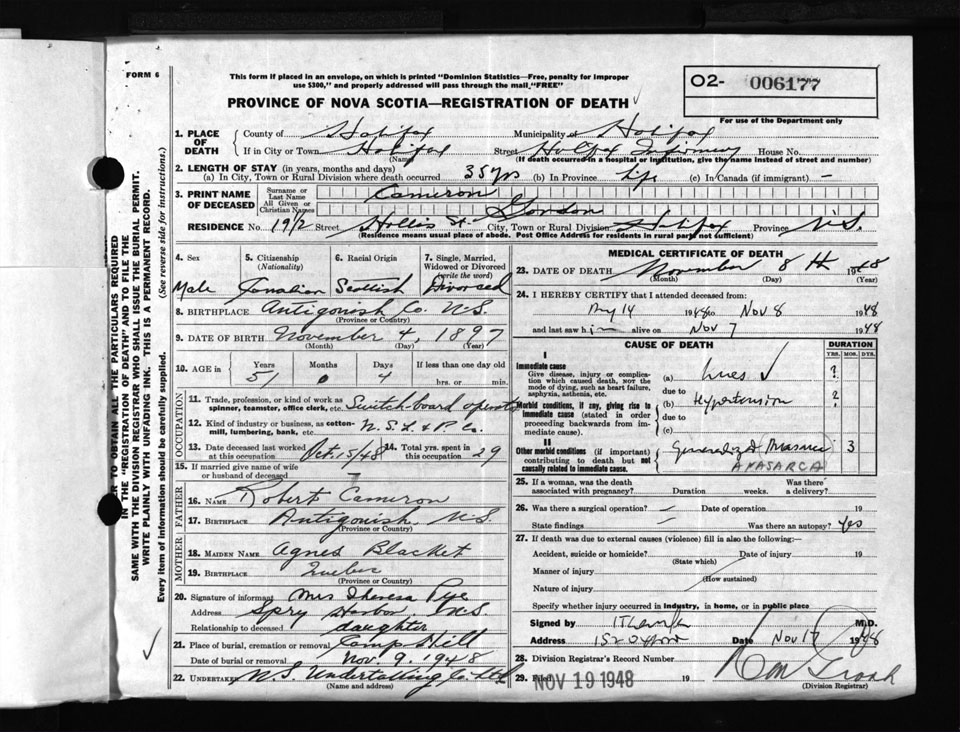 FORM 6
This form if placed in an envelope, on which is printed "Dominion Statistics—Free, penalty for improper
use $300," and properly addressed will pass through the mail "FREE"
PROVINCE OF NOVA SCOTIA—REGISTRATION OF DEATH
O2- 006177
For use of the Department only
1. PLACE OF DEATH
County of Halifax Municipality of Halifax
If in City or Town Halifax (Name) Street Halifax Infirmary House No.
(If death occurred in a hospital or institution, give the name instead of street and number)
2. LENGTH OF STAY (in years, months and days)
(a) In City, Town or Rural Division where death occurred 35 yrs (b) In Province Life (c) In Canada (if immigrant) —
3. PRINT NAME OF DECEASED
Surname or Last Name Cameron
All Given or Christian Names Gordon
RESIDENCE No. 191/2 Street Hollis St. City, Town or Rural Division Halifax Province N.S.
(Residence means usual place of abode. Post Office Address for residents in rural parts not sufficient)
4. Sex 5. Citizenship (Nationality) 6. Racial Origin 7. Single, Married, Widowed or Divorced (write the word)
Male Canadian Scottish Divorced
8. BIRTHPLACE Antigonish Co. N.S.
(Province or Country)
9. DATE OF BIRTH November 4, 1897
(Month) (Day) (Year)
10. AGE IN Years Months Days If less than one day old
51 0 4 hrs. or min.
OCCUPATION
11. Trade, profession, or kind of work as spinner, teamster, office clerk, etc. Switch-board operator
12. Kind of industry or business, as cotton-mill, lumbering, bank, etc. N.S.L. & P. Co.
13. Date deceased last worked at this occupation Oct. 15/48 14. Total yrs. spent in this occupation 29
15. If married give name of wife or husband of deceased
FATHER
16. NAME Robert Cameron
17. BIRTHPLACE Antigonish, N.S.
(Province or Country)
MOTHER
18. MAIDEN NAME Agnes Blacket
19. BIRTHPLACE Quebec
(Province or Country)
20. Signature of informant Mrs Theresa Pye
Address Spry Harbor, N.S.
Relationship to deceased daughter
21. Place of burial, cremation or removal Camp Hill
Date of burial or removal Nov. 9, 1948
22. UNDERTAKER N.S. Undertaking Co. Ltd.
(Name and address)
MEDICAL CERTIFICATE OF DEATH
23. DATE OF DEATH November 8th 1948
(Month) (Day) (Year)
24. I HEREBY CERTIFY that I attended deceased from:
14 1948 to Nov 8 1948
and last saw him alive on Nov 7 1948
CAUSE OF DEATH DURATION
YRS. MOS. DYS.
I
Immediate cause
Give disease, injury or complication which caused death, NOT the mode of dying, such as heart failure, asphyxia, asthenia, etc.
(a) Lues ?
due to
Morbid conditions, if any, giving rise to immediate cause (stated in order proceeding backwards from immediate cause).
(b) Hypertension ?
due to
(c)
II
Other morbid conditions (if important) contributing to death but not causally related to immediate cause.
Generalized 3
ANASARCA
25. If a woman, was the death associated with pregnancy? Duration weeks. Was there a delivery?
26. Was there a surgical operation? — Date of operation 19
State findings — Was there an autopsy? Yes
27. If death was due to external causes (violence) fill in also the following:—
Accident, suicide or homicide? Date of injury 19
(State which)
Manner of injury
(How sustained)
Nature of injury
Specify whether injury occurred in industry, in home, or in public place
Signed by M.D.
Address Date Nov 17 1948
28. Division Registrar's Record Number
29. Filed NOV 19 1948 19
(Division Registrar)
TO OBTAIN ALL THE PARTICULARS REQUIRED
IN THE "REGISTRATION OF DEATH" AND TO FILE THE
SAME WITH THE DIVISION REGISTRAR WHO SHALL ISSUE THE BURIAL PERMIT.
WRITE PLAINLY WITH UNFADING INK. THIS IS A PERMANENT RECORD.
Every item of information should be carefully supplied. (See reverse side for instructions.)